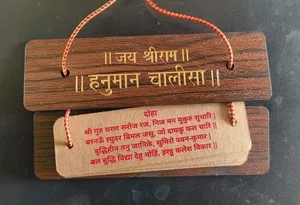 ॥ जय श्रीराम ॥
॥ हनुमान चालीसा ॥
दोहा
श्री गुरु चरण सरोज रज, निज मन मुकुरु सुधारि ।
बरनऊँ रघुवर बिमल जसु, जो दायकु फल चारि ॥
बुद्धिहीन तनु जानिके, सुमिरो पवन-कुमार ।
बल बुद्धि विद्या देहु मोहिं, हरहु कलेश विकार ॥